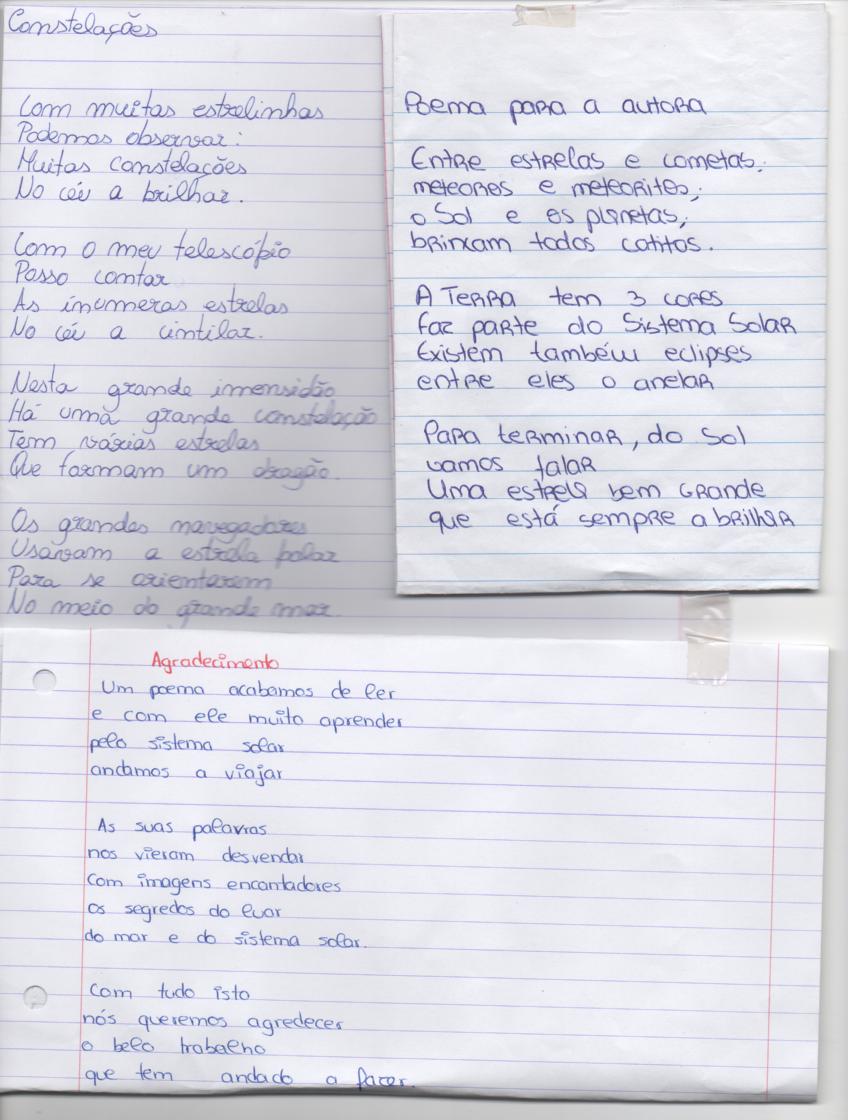 Constelações
Com muitas estrelinhas
Podemos observar:
Muitas constelações
No céu a brilhar.
Com o meu telescópio
Posso contar
As inumeras estrelas
No céu a cintilar.
Nesta grande imensidão
Há uma grande constelação
Tem várias estrelas
Que formam um dragão.
Os grandes navegadores
Usavam a estrela polar
Para se orientarem
No meio do grande mar.
Poema para a autora
Entre estrelas e cometas,
meteores e meteorites,
o Sol e os planetas,
brincam todos catitos.
A Terra tem 3 cores
faz parte do Sistema Solar
Existem também eclipses
entre eles o anelar
Para terminar, do Sol
vamos falar
Uma estrela bem grande
que está sempre a brilhar
Agradecimento
Um poema acabamos de ler
e com ele muito aprender
pelo sistema solar
andamos a viajar
As suas palavras
nos vieram desvendar
com imagens encantadores
os segredos do luar
do mar e do sistema solar.
Com tudo isto
nós queremos agredecer
o belo trabalho
que tem andado a fazer.